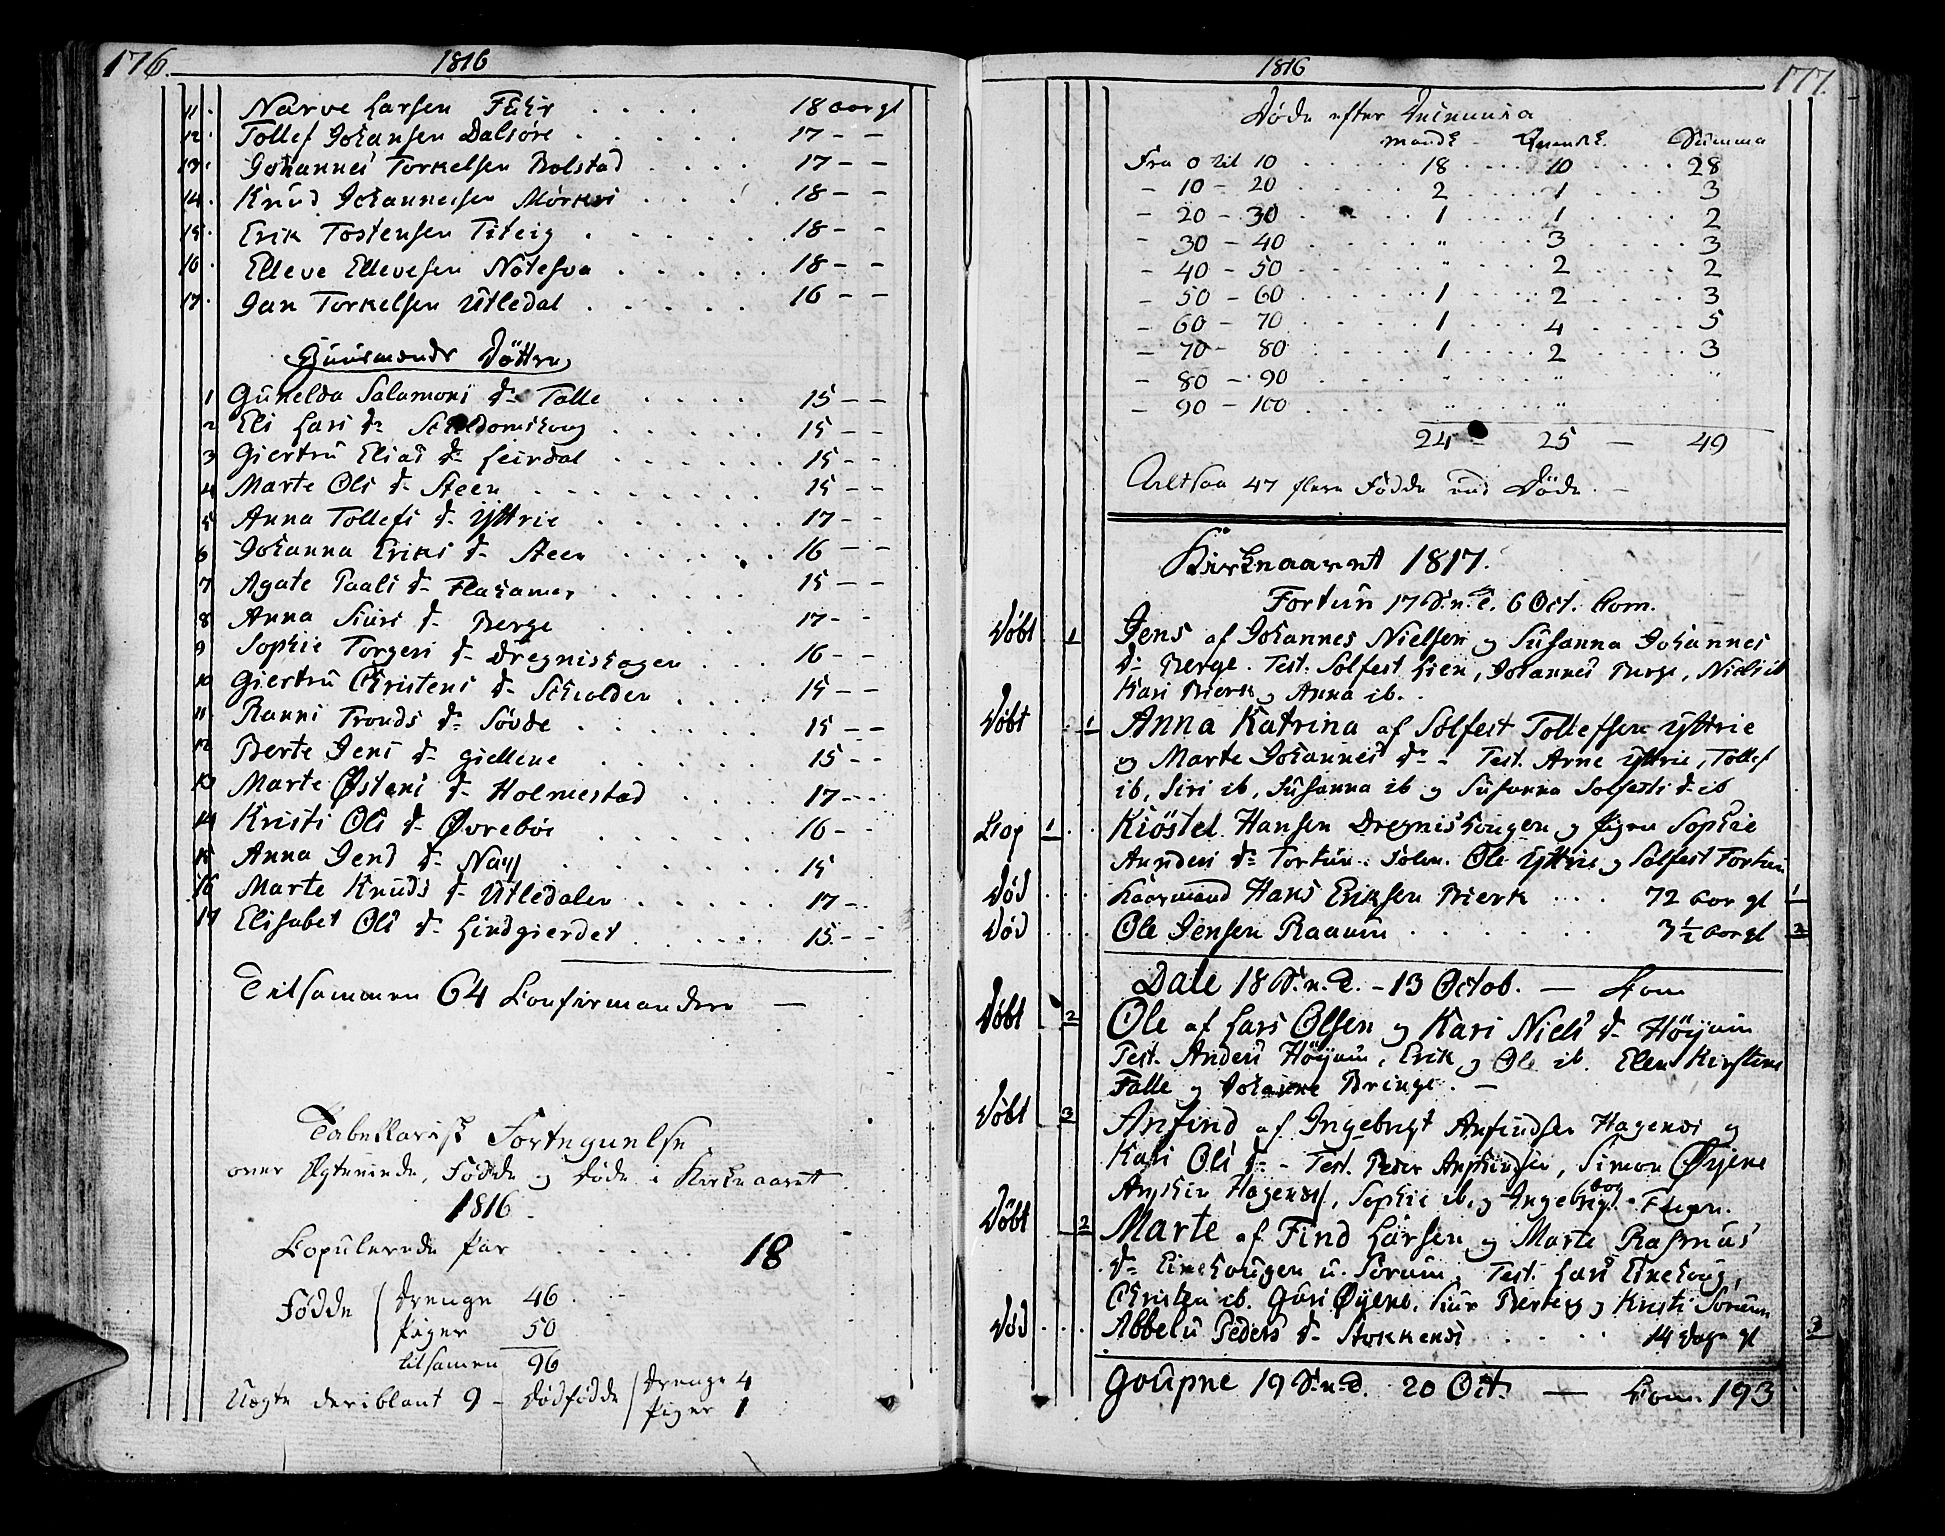 176. 1816
11. Narve Larsen Fuhr . . . . 18 aar gl
12. Tollef Johansen Dalsøre . . . . 17 - -
13. Johannes Torkelsen Bolstad . . . . 17 - -
14. Knud Johannesen Mørkri . . . . 18 - -
15. Erik Tostensen Titeig . . . . 18 - -
16. Elleve Ellevesen Nøtesva . . . . 18 - -
17. Jan Torkelsen Utledal . . . . 16 - -
Huusmænds Døttre
1 Gunelda Salamons d. Talle . . . . 15 - -
2 Eli Lars dr . . . . 15 - -
3 Giertru Elias dr Leirdal . . . . 15 - -
4 Marte Ols dr Steen . . . . 15 - -
5 Anna Tollefs d. Yttrie . . . . 17 - -
6 Johanna Eriks dr Steen . . . . 16 - -
7 Agate Paals dr Flahamer . . . . 15 - -
8 Anna Siurs dr Berge . . . . 17 - -
9 Sophie Torgers dr Dregnishagen . . . 16 - -
10 Giertru Christens dr Schiolden . . . . 15 - -
11. Ranni Tronds dr Søvde . . . . 15 - -
12 Berte Jens dr Giellene . . . . 15 - -
13 Marte Østens dr Holmestad . . . . 17 - -
14 Kristi Ols dr Øvrebøe . . . . 16 -
15 Anna Jens dr Næs . . . . 15
16 Marte Knuds dr Utledalen . . . . 17 -
17 Elisabet Ols dr Lindgierdet . . . . 15. - -
Tilsammen 64 Confirmandere —
Tabellarisk Fortegnelse
over Ægteviede, Fødde og Døde i Kirkeaaret
1816.
Copulerede Par . . . . 18
Fødde Drenge 46
Piger 50
tilsamen 96
Uægte deriblant 9 - Dødfødde Drenge 4
Piger 1
1816 177.
Døde efter
Mandk - Qvindk. Summa
Fra 0 til 10 . . . . 18 . . . . 10 . . . . 28
- 10 - 20 . . . . 2 . . . . 1 . . . . 3
- 20 - 30 . . . . 1 . . . . 1 . . . . 2
- 30 - 40 . . . . " . . . . 3 . . . . 3
- 40 - 50 . . . . " . . . . 2 . . . . 2
- 50 - 60 . . . . 1 . . . . 2 . . . . 3
- 60 - 70 . . . . 1 . . . . 4 . . . . 5
- 70 - 80 . . . . 1 . . . . 2 . . . . 3
- 80 - 90 . . . . " . . . . " . . . . "
- 90 - 100 . . . . " . . . . "
24 - 25 - 49
Altsaa 47 flere Fødde end Døde. —
Kirkeaaret 1817.
Fortun 17 S. n. T. 6 Oct. Com.
Døbt 1 Jens af Johannes Nielsen og Susanna Johannes
dr Berge. Test. Solfest Lien, Johannes Berge, Niels ib
Kari Bierk og Anna ib.
Døbt 1 Anna Katrina af Solfest Tollefsen Yttrie
og Marte Johannes dr - Test. Arne Yttrie, Tollef
ib, Siri ib, Susanna ib og Susanna Solfests d ib
Cop 1 Kiøstel Hansen Dregnishougen og Pigen Sophie
Anders dr Fortun. Solen. Ole Yttrie og Solfest Fortun
Død Kaarmand Hans Eriksen Bierk . . . 72 aar gl 1
Død Ole Jensen Raaum . . . . 3½ aar gl 2
Dale 18 S. n. T. - 13 Octob. — Com
Døbt 2 Ole af Lars Olsen og Kari Niels dr Høyum
Test. Anders Høyum, Erik og Ole ib. Elen Kirstine
Talle og Johanne Bringe. —
Døbt 3 Anfind af Ingebrigt Anfindsen Hagenæs og
Kari Ols dr - Test. Peder Anfindsen, Simon Øyene
Hagenæs, Sophie ib. og Ingeborg
Døbt 2 Marte af Find Larsen og Marte Rasmus
dr Einehougen u. Sorum, Test. Lars Einehoug,
Christen ib. Guri Øyene, Siur og Kristi Sorum
Død Abbelu Peders dr Stokkenæs . . . . 14 Dage gl 3
Goupne 19 S. n. T. 20 Oct. — Com. 193